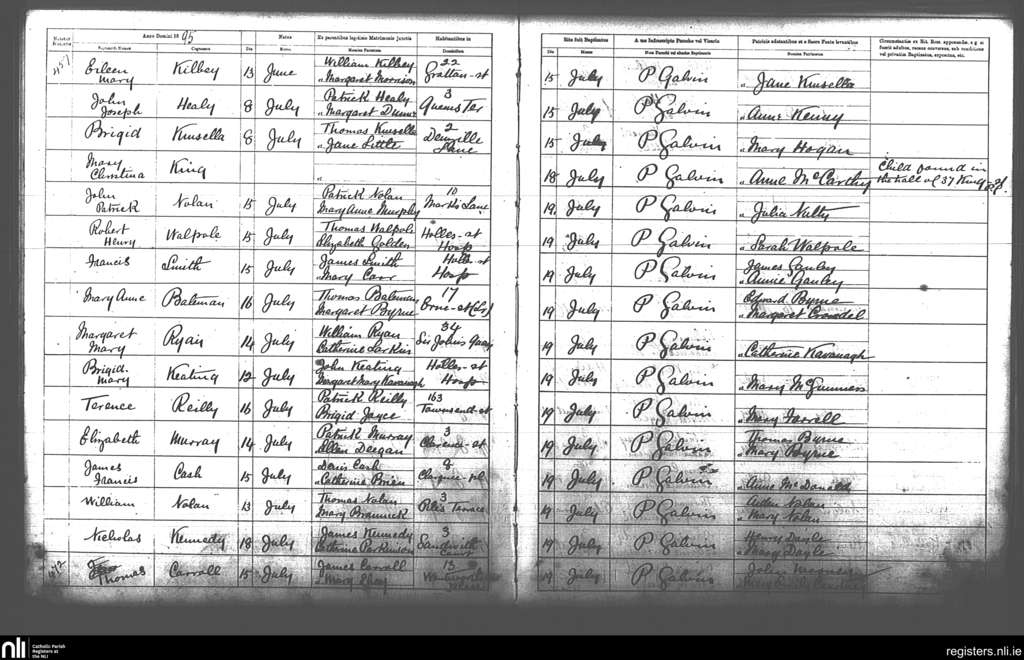 Anno Domini 1895
Natus
Ex parentibus legitimo Matrimonio junctis
Habitantibus in
Cognomen
Die
Mense
Nomina Parentum
457 Eileen Mary Kilbey 13 June William Kilbey Margaret Morrison 22 Grattan-st
John Joseph Healy 8 July Patrick Healy Margaret Dunne 3 Queens Ter
Brigid Kinsella 8 July Thomas Kinsella Jane Little 2 Denville Lane
Mary Christina King
John Patrick Nolan 15 July Patrick Nolan Mary Anne Murphy 10 Marks Lane
Robert Henry Walpole 15 July Thomas Walpole Elizabeth Golden Holles-st Hosp
Francis Smith 15 July James Smith Mary Carr Holles-st Hosp
Mary Anne Bateman 16 July Thomas Bateman Margaret Byrne 17
Margaret Mary Ryan 14 July William Ryan Catherine Larkin 34 Sir John's Quay
Brigid Mary Keating 12 July John Keating Margaret Mary Kavanagh Holles-st Hosp
Terence Reilly 16 July Patrick Reilly Brigid Joyce 163 Townsend-st
Elizabeth Murray 14 July Patrick Murray Ellen Deegan 3 Clarence-st
James Francis Cash 15 July Denis Cash Catherine Brien 8
William Nolan 13 July Thomas Nolan Mary Brannick 3 Terrace
Nicholas Kennedy 18 July James Kennedy Catherine Parkinson 3 Sandwith Court
472 Thomas Carroll 15 July James Carroll Mary 13
Rite Sub Baptizatus
A me Infrascripto Parocho vel Vicario
Patrinis adstantibus et e Sacro Fonte levantibus
Die
Mense
Nom Parochi vel alterius Baptizantis
Nomina Patrinorum
15 July P Galvin Jane Kinsella
15 July P Galvin Anne Kenny
15 July P Galvin Mary Hogan
18 July P Galvin Anne McCarthy Child found in the hall of 37 King st
19 July P Galvin Julia Nulty
19 July P Galvin Sarah Walpole
19 July P Galvin James Ganley Annie Ganley
19 July P Galvin Edward Byrne Margaret
19 July P Galvin Catherine Kavanagh
19 July P Galvin Mary
19 July P Galvin Mary Farrell
19 July P Galvin Thomas Byrne Mary Byrne
19 July P Galvin Anne McDonald
19 July P Galvin Nolan Mary Nolan
19 July P Galvin Henry Doyle Mary Doyle
19 July P Galvin John
nli Catholic Parish Registers at the NLI
registers.nli.ie